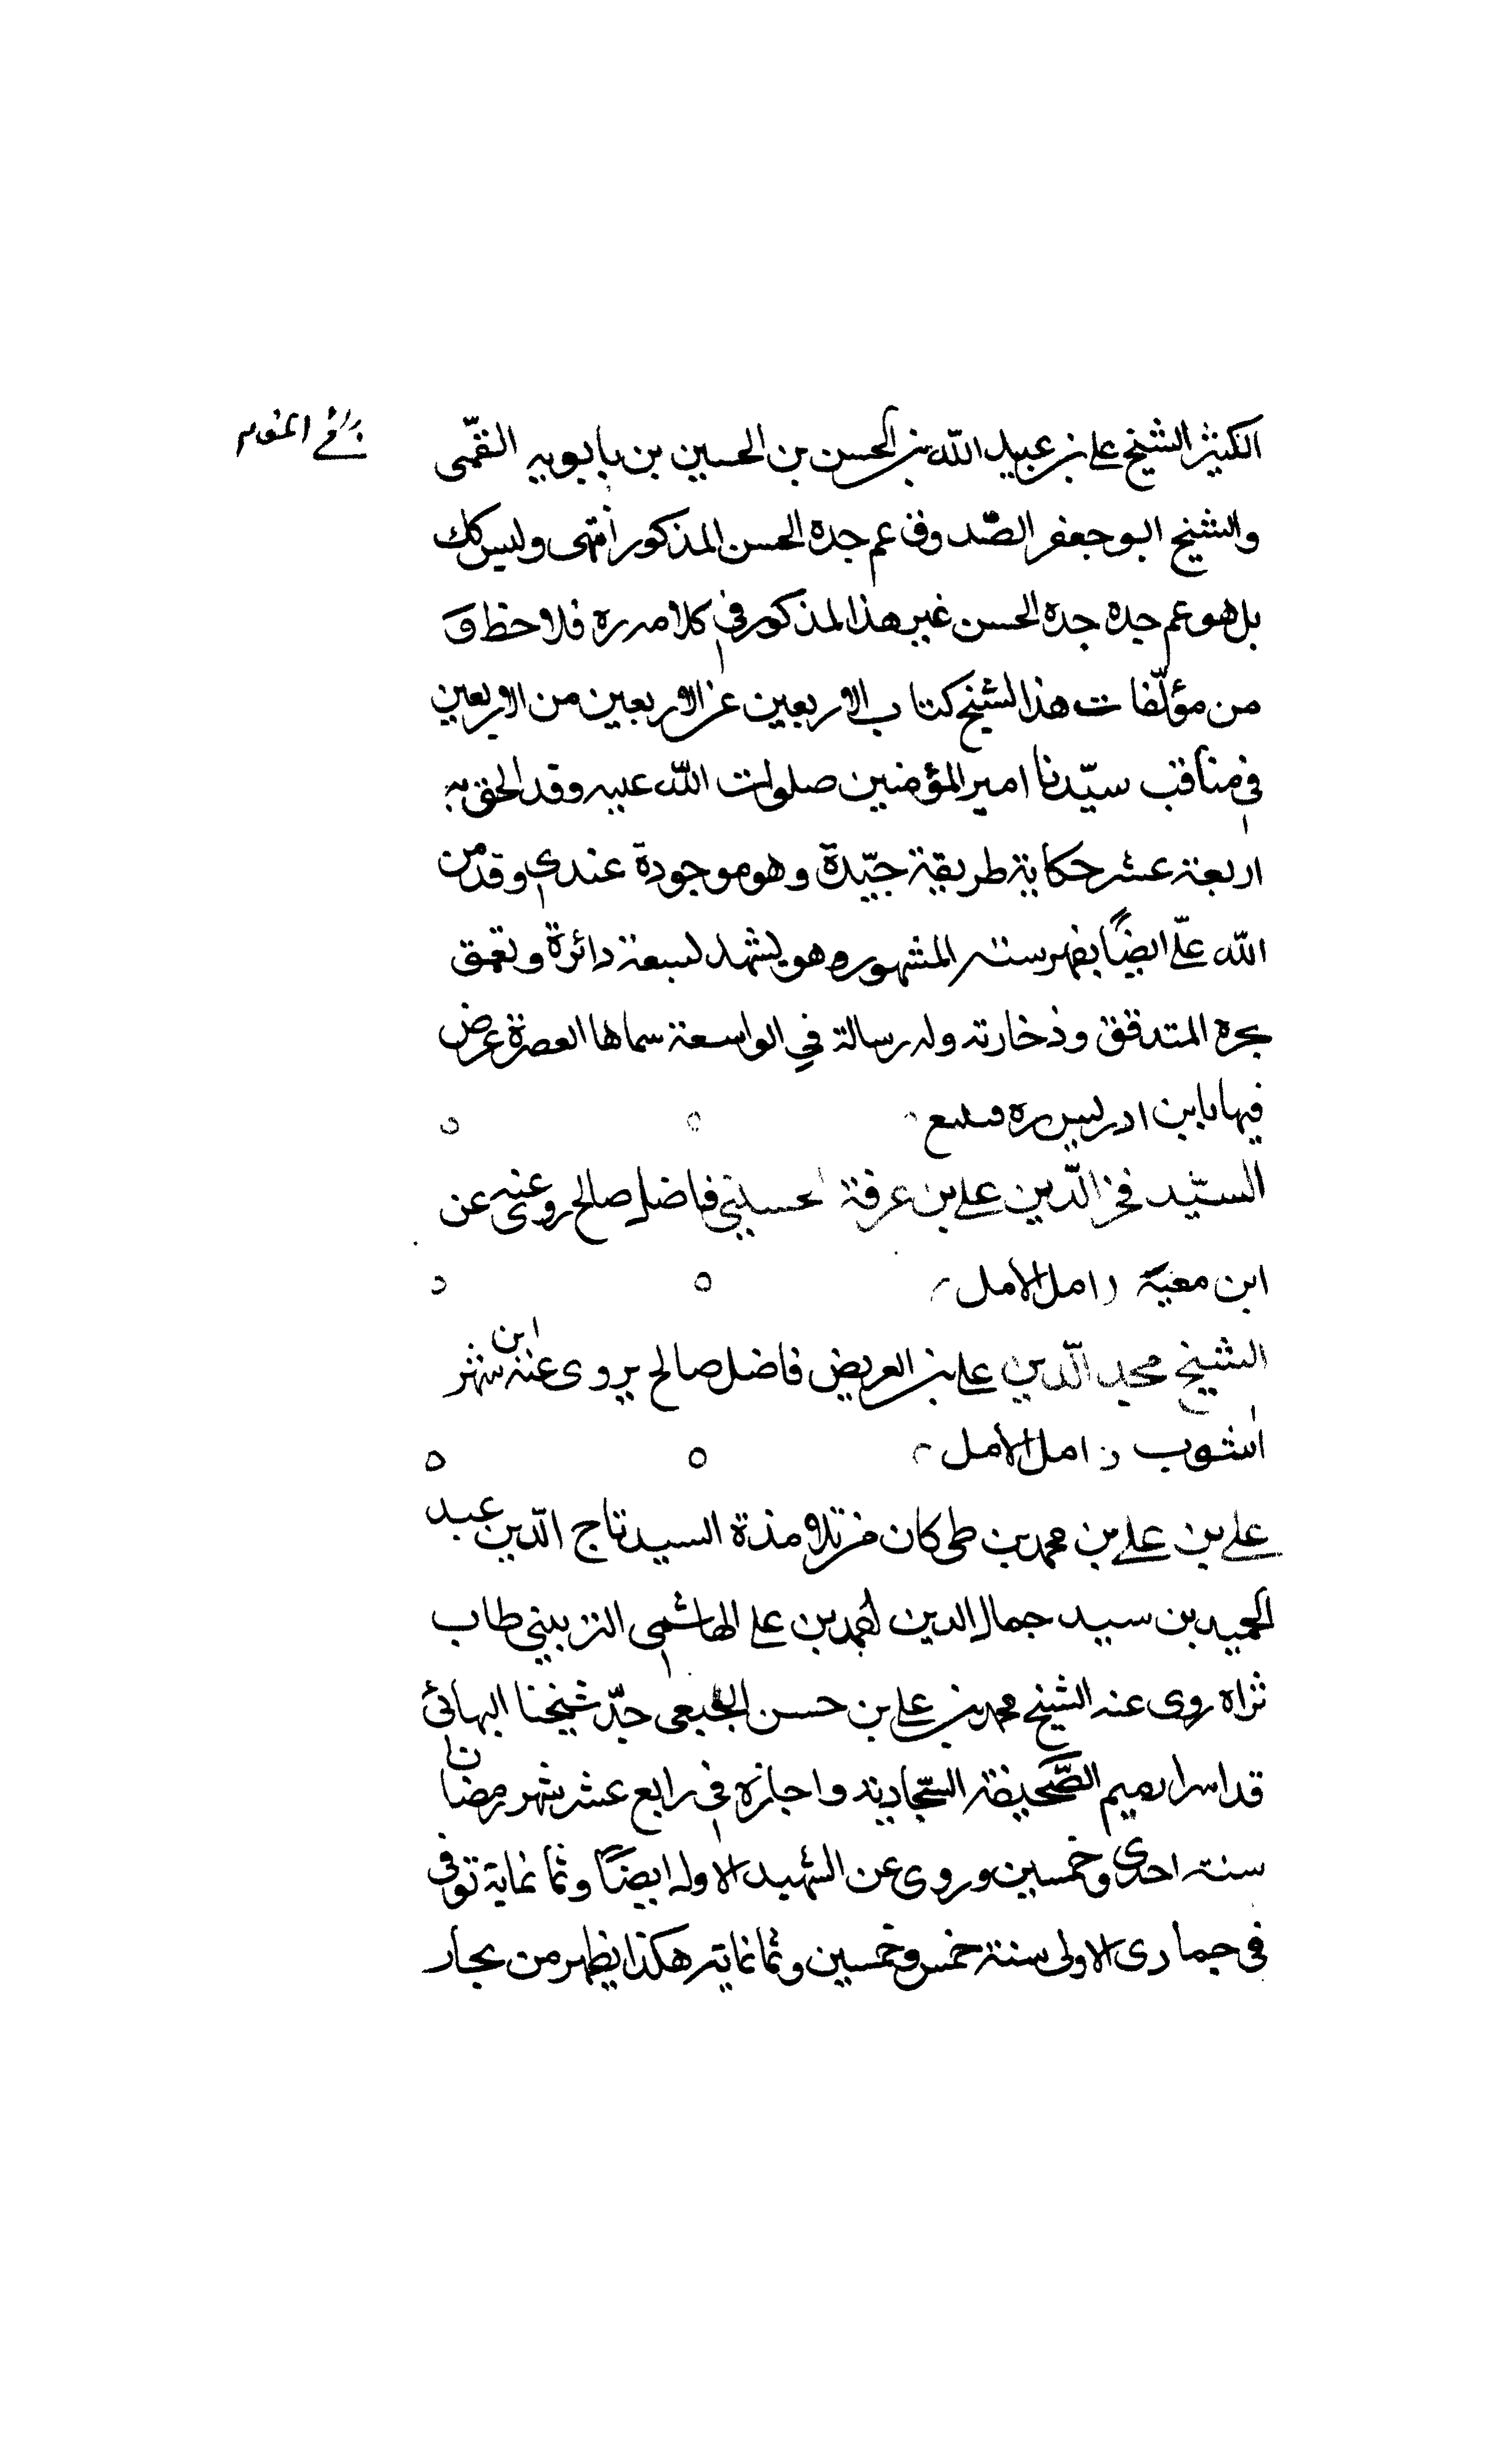 الكثير الشيخ علي بن عبيد الله بن الحسن بن الحسين بن بابويه القمّى
والشيخ ابو جعفر الصّدوق عم جده الحسن المذكور انتهى وليس كك
بل هو عم جده جده الحسن غير هذا المذكور في كلامه ره فلاحظ و
من مؤلّفات هذا الشيخ كتاب الاربعين عن الاربعين من الاربعين
في مناقب سيّدنا امير المؤمنين صلوات الله عليه وقد الحق به
اربعة عشر حكاية طريقة جيّدة وهو موجودة عندى وقد من
الله علىّ ايضًا بفهرسته المشهور وهو يشهد لسعة دائرة وتعمق
بحره المتدقق وذخارته وله رسالة في الواسعة سماها العصرة عرض
فيها بابن ادريس ره
السيّد فخر الدّين علي بن عرفة الحسيني فاضل صالح روى عنه عن
ابن معيّة امل الامل
الشيخ مجد الدّين علي بن العريض فاضل صالح يروى عنه ابن شهر
اشوب امل الامل
علي بن علي بن محمد بن طى كان من تلامذة السيد تاج الدّين عبد
الحميد بن سيد جمال الدين احمد بن علي الهاشمى الزينبي طاب
ثراه روى عنه الشيخ محمد بن علي بن حسن الجبعى جدّ شيخنا البهائى
قد اسرارهم الصّحيفة السّجادية واجازه في رابع عشر شهر رمضان
سنة احدى وخمسين وروى عن الشهيد الاول ايضًا وثمانماية توفى
في جمادى الاولى سنة خمس وخمسين وثمانماية هكذا يظهر من بحار